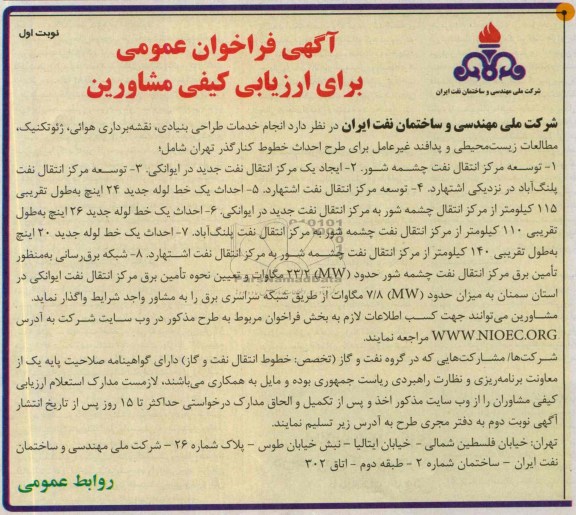 نوبت اول
آگهی فراخوان عمومی
برای ارزیابی کیفی مشاورین
شرکت ملی مهندسی و ساختمان نفت ایران
شرکت ملی مهندسی و ساختمان نفت ایران در نظر دارد انجام خدمات طراحی بنیادی، نقشه‌برداری هوائی، ژئوتکنیک،
مطالعات زیست‌محیطی و پدافند غیرعامل برای طرح احداث خطوط کنارگذر تهران شامل؛
۱- توسعه مرکز انتقال نفت چشمه شور. ۲- ایجاد یک مرکز انتقال نفت جدید در ایوانکی. ۳- توسعه مرکز انتقال نفت
پلنگ‌آباد در نزدیکی اشتهارد. ۴- توسعه مرکز انتقال نفت اشتهارد. ۵- احداث یک خط لوله جدید ۲۴ اینچ به‌طول تقریبی
۱۱۵ کیلومتر از مرکز انتقال چشمه شور به مرکز انتقال نفت جدید در ایوانکی. ۶- احداث یک خط لوله جدید ۲۶ اینچ به‌طول
تقریبی ۱۱۰ کیلومتر از مرکز انتقال نفت چشمه شور به مرکز انتقال نفت پلنگ‌آباد. ۷- احداث یک خط لوله جدید ۲۰ اینچ
به‌طول تقریبی ۱۴۰ کیلومتر از مرکز انتقال نفت چشمه شور به مرکز انتقال نفت اشتهارد. ۸- شبکه برق‌رسانی به‌منظور
تأمین برق مرکز انتقال نفت چشمه شور حدود (MW) ۲۳/۲ مگاوات و تعیین نحوه تأمین برق مرکز انتقال نفت ایوانکی در
استان سمنان به میزان حدود (MW) ۷/۸ مگاوات از طریق شبکه سراسری برق را به مشاور واجد شرایط واگذار نماید.
مشاورین می‌توانند جهت کسب اطلاعات لازم به بخش فراخوان مربوط به طرح مذکور در وب سایت شرکت به آدرس
WWW.NIOEC.ORG مراجعه نمایند.
شرکت‌ها/ مشارکت‌هایی که در گروه نفت و گاز (تخصص: خطوط انتقال نفت و گاز) دارای گواهینامه صلاحیت پایه یک از
معاونت برنامه‌ریزی و نظارت راهبردی ریاست جمهوری بوده و مایل به همکاری می‌باشند، لازمست مدارک استعلام ارزیابی
کیفی مشاوران را از وب سایت مذکور اخذ و پس از تکمیل و الحاق مدارک درخواستی حداکثر تا ۱۵ روز پس از تاریخ انتشار
آگهی نوبت دوم به دفتر مجری طرح به آدرس زیر تسلیم نمایند.
تهران: خیابان فلسطین شمالی - خیابان ایتالیا – نبش خیابان طوس – پلاک شماره ۲۶ – شرکت ملی مهندسی و ساختمان
نفت ایران – ساختمان شماره ۲ – طبقه دوم - اتاق ۳۰۲
روابط عمومی